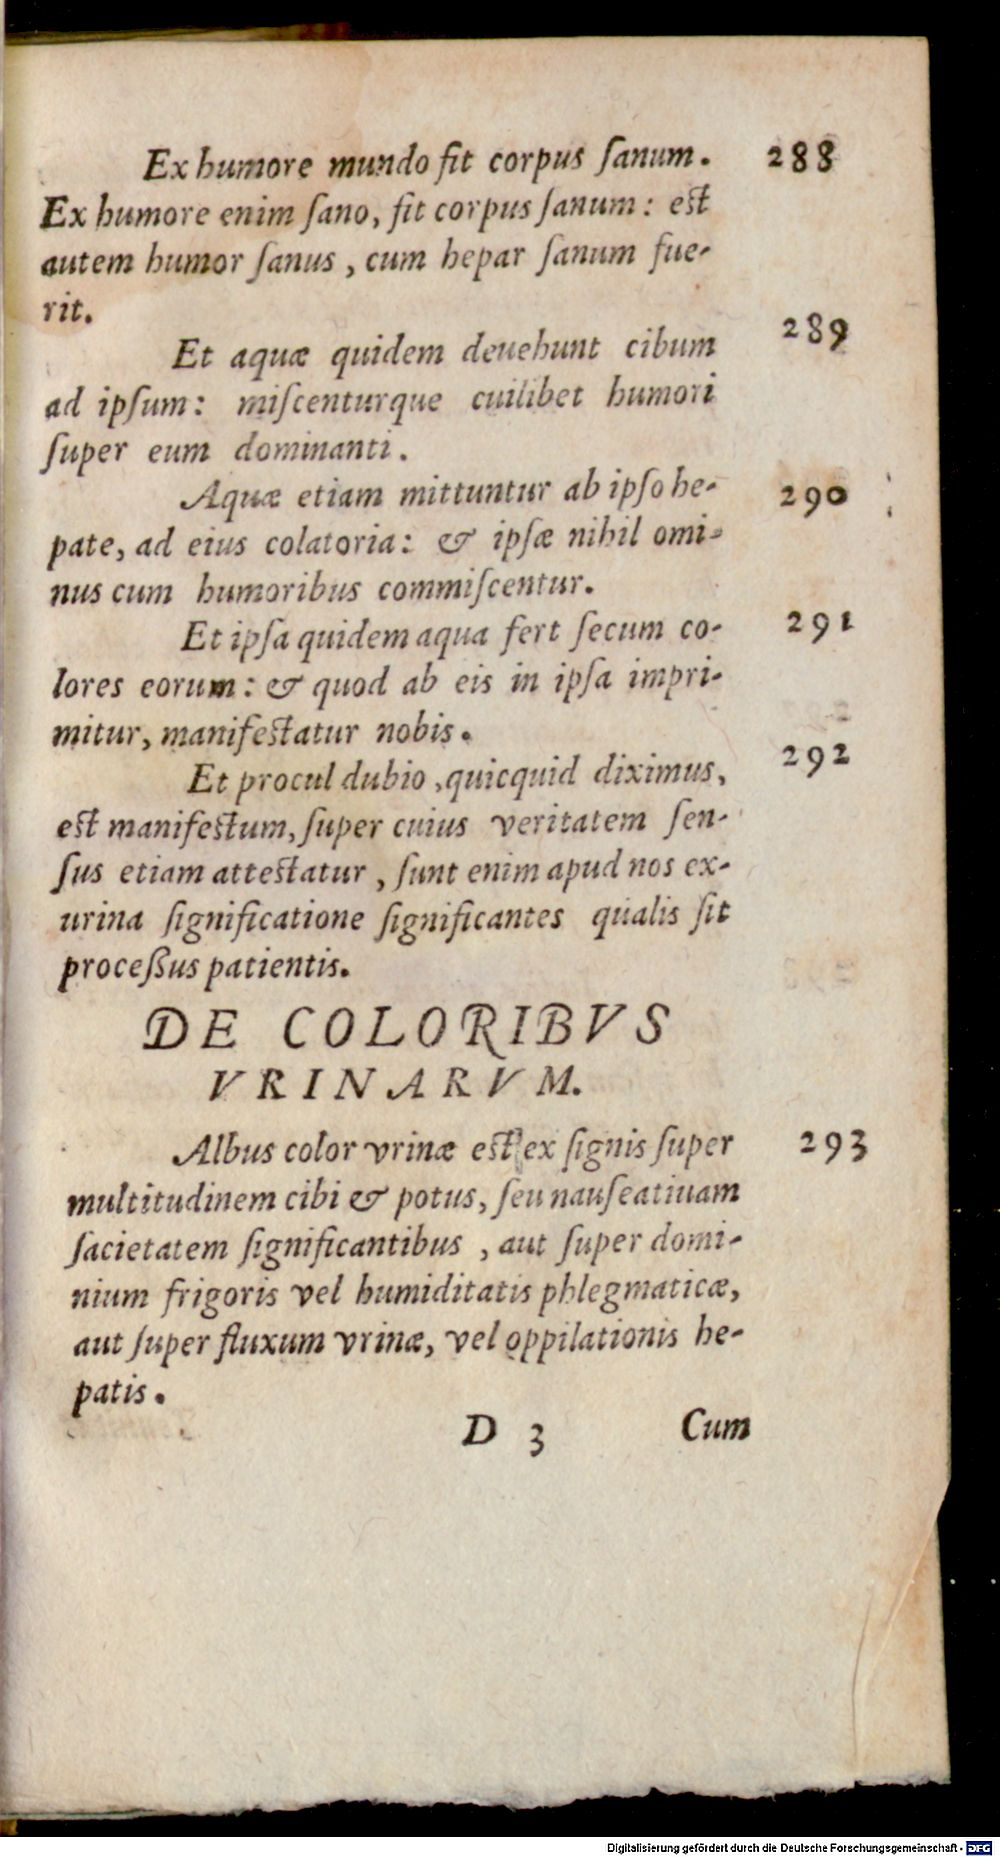 Ex humore mundo fit corpus ſanum. 288
Ex humore enim ſano, fit corpus ſanum: eſt
autem humor ſanus, cum hepar ſanum fue-
rit.
Et aquæ quidem deuehunt cibum 289
ad ipſum: miſcenturque cuilibet humori
ſuper eum dominanti.
Aquæ etiam mittuntur ab ipſo he- 290
pate, ad eius colatoria: & ipſæ nihil omi-
nus cum humoribus commiſcentur.
Et ipſa quidem aqua fert ſecum co- 291
lores eorum: & quod ab eis in ipſa impri-
mitur, manifeſtatur nobis.
Et procul dubio, quicquid diximus, 292
eſt manifeſtum, ſuper cuius veritatem ſen-
ſus etiam atteſtatur, ſunt enim apud nos ex-
urina ſignificatione ſignificantes qualis ſit
proceßus patientis.
DE COLORIBVS
VRINARVM.
Albus color vrinæ eſt ex ſignis ſuper 293
multitudinem cibi & potus, ſeu nauſeatiuam
ſacietatem ſignificantibus, aut ſuper domi-
nium frigoris vel humiditatis phlegmaticæ,
aut ſuper fluxum vrinæ, vel oppilationis he-
patis.
D 3 Cum
Digitalisierung gefördert durch die Deutsche Forschungsgemeinschaft - DFG